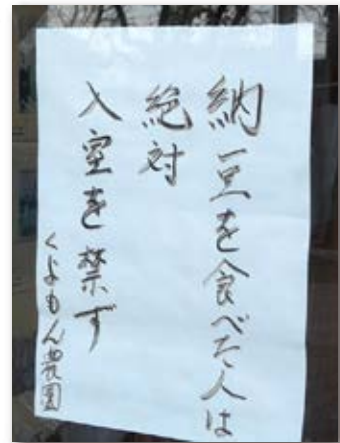 納豆を食べた人は
絶対
入室を禁ず
くよもん農園